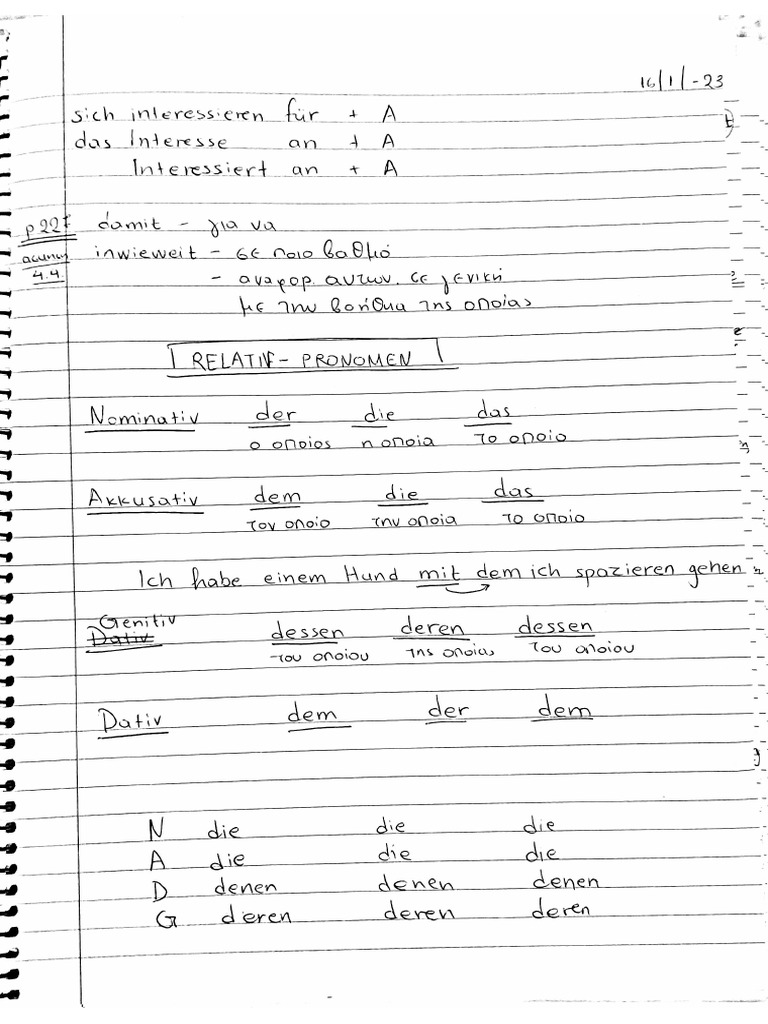 16/1/-23
sich interessieren für + A
das Interesse an + A
Interessiert an + A
p 227 damit - για να
inwieweit - σε ποιο βαθμό
4.4.
- αναφορ. αυτων. σε γενική
με την βοήθια της οποίας
RELATIV-PRONOMEN
Nominativ der die das
ο οποίος η οποία το οποίο
Akkusativ dem die das
τον οποίο την οποία το οποίο
Ich habe einem Hund mit dem ich spazieren gehen
Genitiv
Dativ dessen deren dessen
του οποίου της οποίας του οποίου
Dativ dem der dem
N die die die
A die die die
D denen denen denen
G deren deren deren